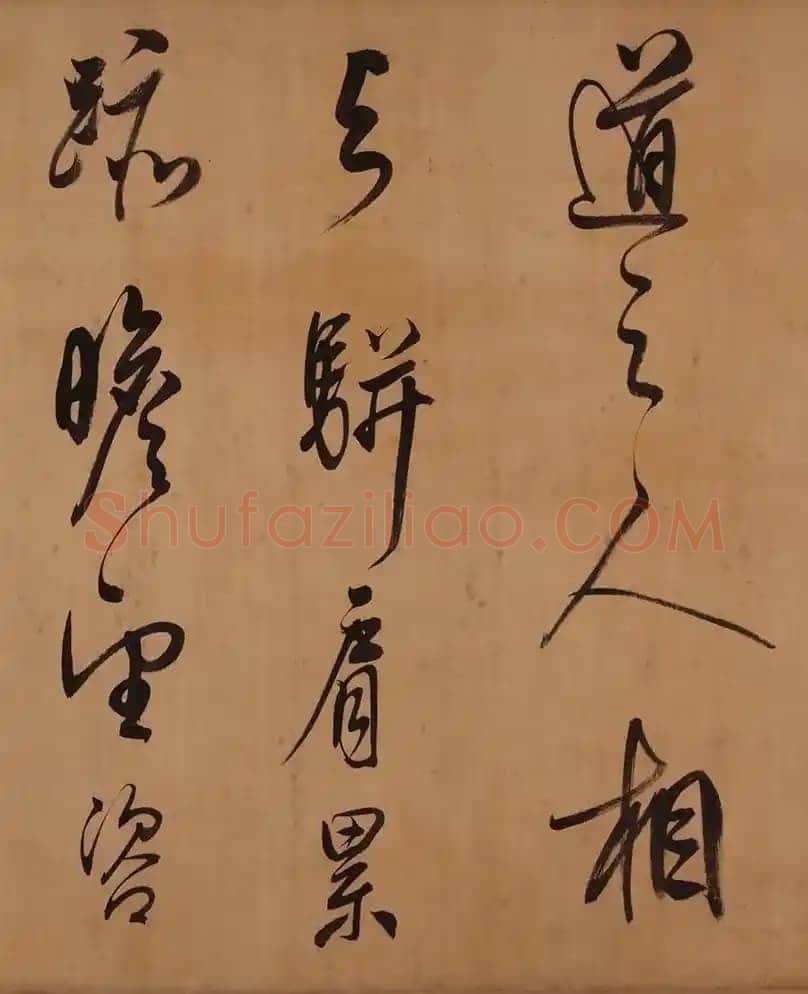 道之人相
与駢肩累
跡瞻望咨
Shufaziliao.COM